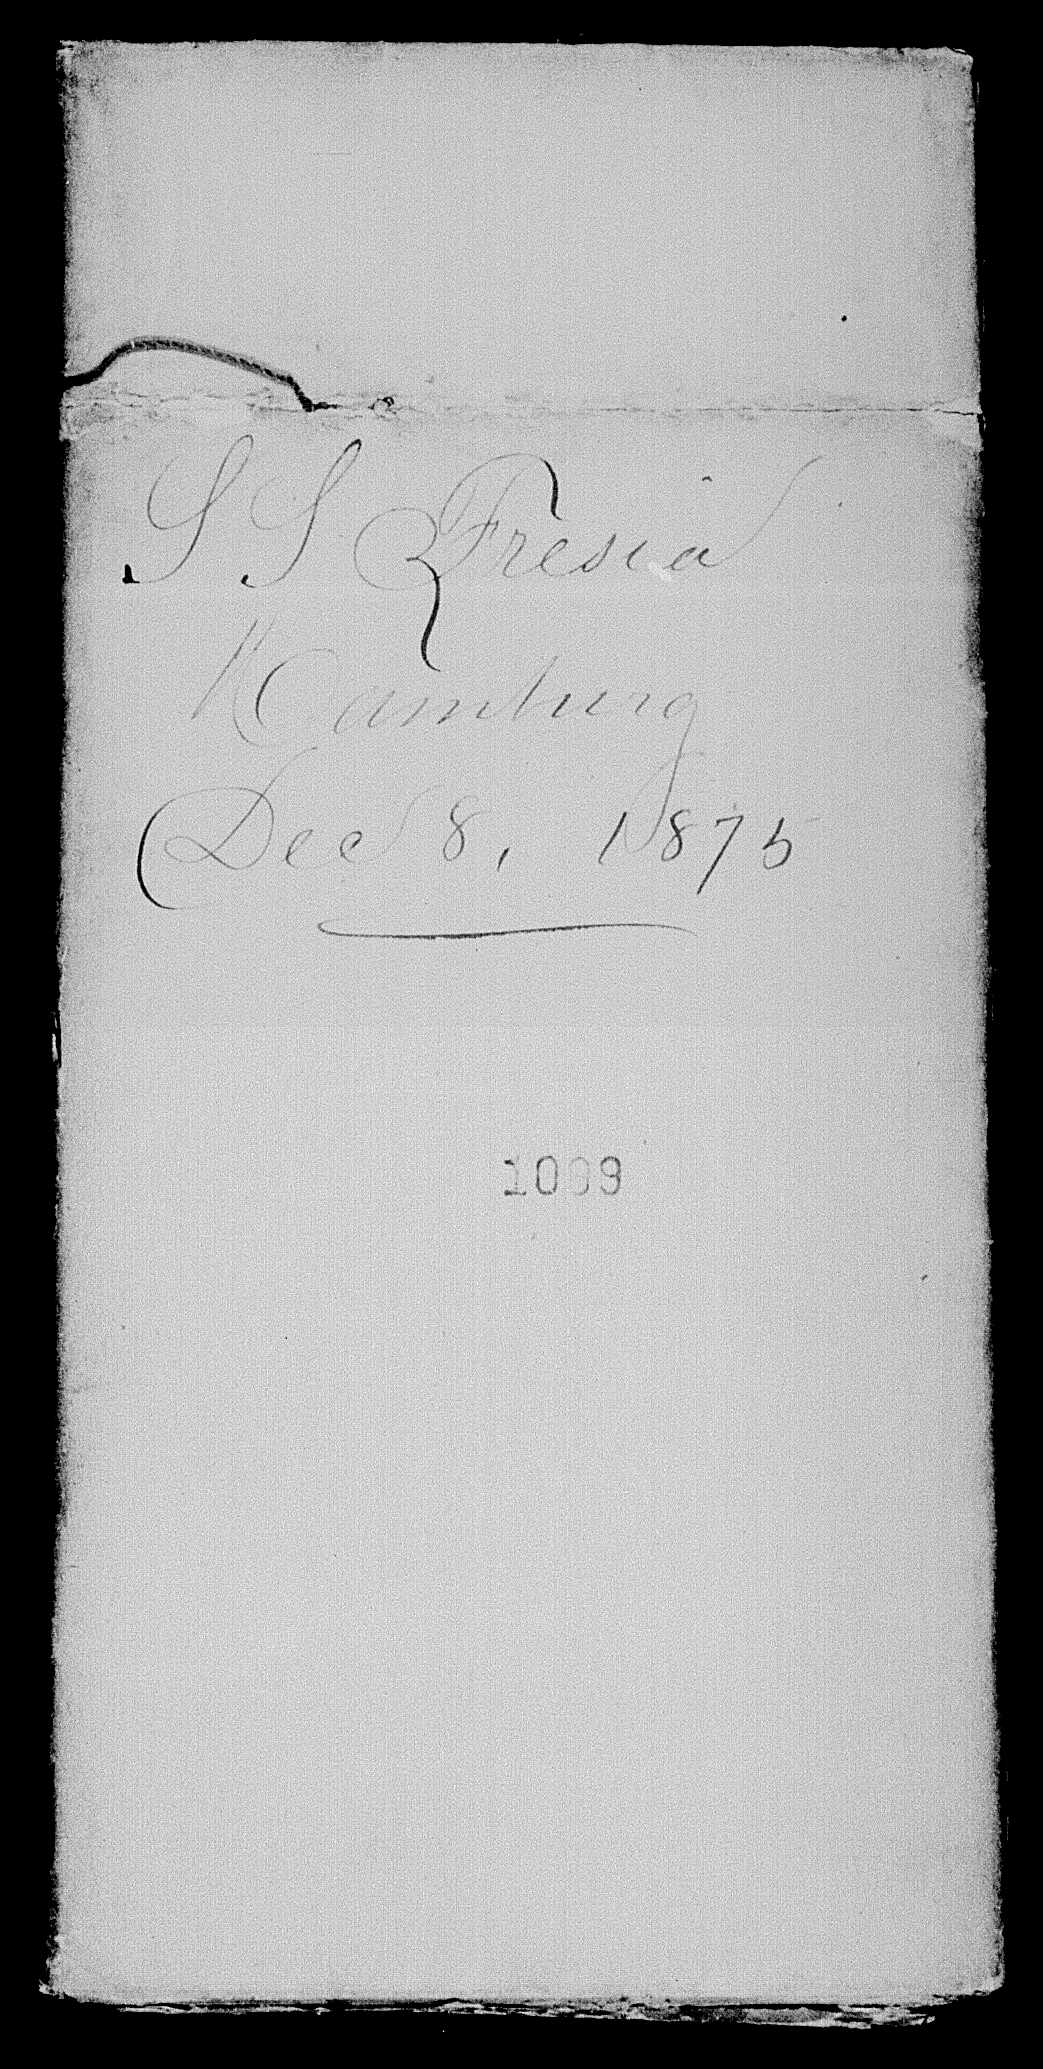 SS Fresia
Hamburg
Dec 8, 1875
1009